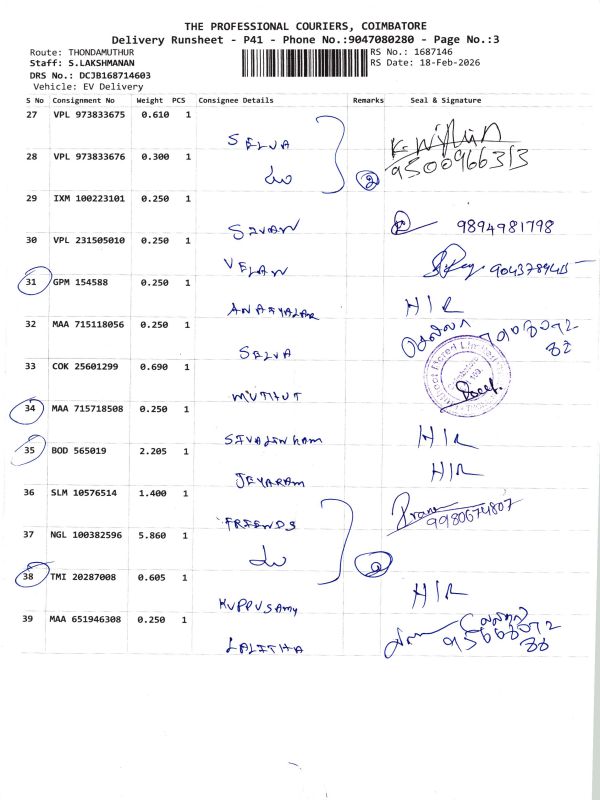 THE PROFESSIONAL COURIERS, COIMBATORE
Delivery Runsheet - P41 - Phone No.:9047080280 - Page No.:3
Route: THONDAMUTHUR RS No.: 1687146
Staff: S.LAKSHMANAN RS Date: 18-Feb-2026
DRS No.: DCJB168714603
Vehicle: EV Delivery
S No Consignment No Weight PCS Consignee Details Remarks Seal & Signature
27 VPL 973833675 0.610 1
SELVA
9500966313
28 VPL 973833676 0.300 1
2
29 IXM 100223101 0.250 1
9894981798
30 VPL 231505010 0.250 1
VELAN
31 GPM 154588 0.250 1
H/R
32 MAA 715118056 0.250 1
SELVA
33 COK 25601299 0.690 1
MUTHUT
34 MAA 715718508 0.250 1
SIVALINGAM H/R
35 BOD 565019 2.205 1
JEYARAM H/R
36 SLM 10576514 1.400 1
FRIENDS
9980674807
37 NGL 100382596 5.860 1
38 TMI 20287008 0.605 1
KUPPUSAMY H/R
39 MAA 651946308 0.250 1
LALITHA